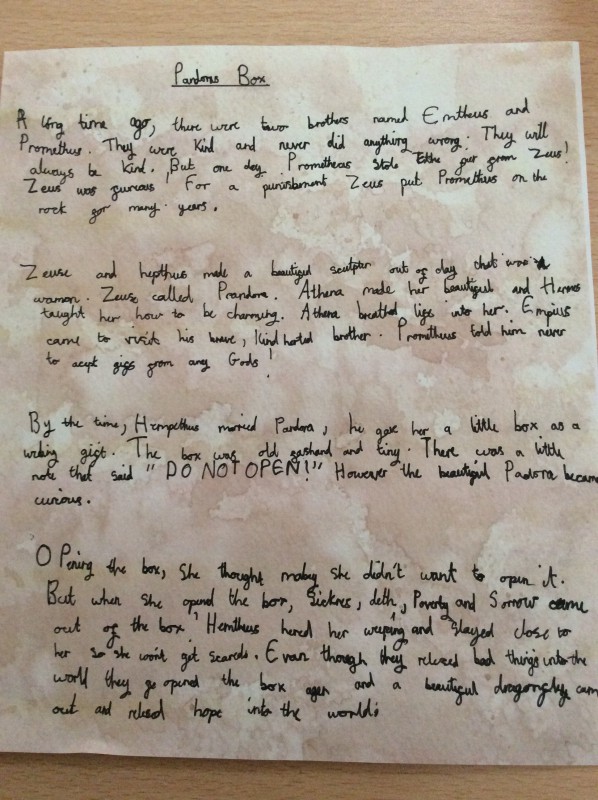 Pandoras Box
A long time ago, there were two brothers named Emtheus and
Prometheus. They were kind and never did anything wrong. They will
always be kind. But one day Prometheus stole the fier from Zeus!
Zeus was fureous. For a punishment Zeus put Prometheus on the
rock for many years.
Zeuse and hepthus made a beautiful sculpter out of clay that was a
woman. Zeus called Prandora. Athena made her beautiful and Hermes
taught her how to be charming. Athena breathed life into her. Empius
came to visit his brave, kind harted brother. Prometheus told him never
to acept gifs from any Gods!
By the time, Hempetheus married Pandora, he gave her a little box as a
wedding gift. The box was old fashand and tiny. There was a little
note that said "DO NOT OPEN!" However the beautiful Padora became
curious.
Opening the box, She thought maby she didn't want to open it.
But when she opend the box, Sicknes, deth, Poverty and Sorrow came
out of the box. Hemtheus hered her weeping and stayed close to
her so she won't get scared. Evan though they relesed bad things into the
world they go opened the box agen and a beautiful dragonfly cam
out and relesed hope into the world.